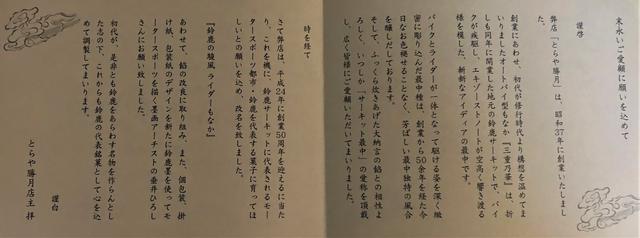 末永いご愛顧に願いを込めて
謹啓
弊店「とらや勝月」は、昭和37年に創業いたしまし
た。
創業にあわせ、初代が修行時代より構想を温めてま
いりましたオートバイ型もなか『三重乃華』は、折
しも同年に開業した地元の鈴鹿サーキットで、バイ
クが疾駆し、エキゾーストノートが空高く響き渡る
様を模した、斬新なアイディアの最中です。
バイクとライダーが一体となって駆ける姿を深く緻
密に彫り込んだ最中種は、創業から50余年を経た今
日なお色褪せることなく、芳ばしい最中独特の風合
を醸しだしております。
そして、ふっくら炊きあげた大納言の餡との相性よ
ろしく、いつしか「サーキット最中」の愛称を頂戴
し、広く皆様にご愛顧いただいてまいりました。
時を経て
さて弊店は、平成24年に創業50周年を迎えるに当た
り、これを機に、鈴鹿サーキットに代表されるモー
タースポーツ都市、鈴鹿を代表する菓子に育ってほ
しいとの願いを込め、改名を致しました。
『鈴鹿の駿風 ライダーもなか』
あわせて、餡の改良に取り組み、また、個包装、掛
け紙、包装紙のデザインを新たに鈴鹿墨を使ってモ
ータースポーツを描く墨画アーチストの垂井ひろし
さんにお願い致しました。
初代が、是非とも鈴鹿をあらわす名物を作らんとし
た志の下、これからも鈴鹿の代表銘菓として心を込
めて調製してまいります。
謹白
とらや勝月店主 拝